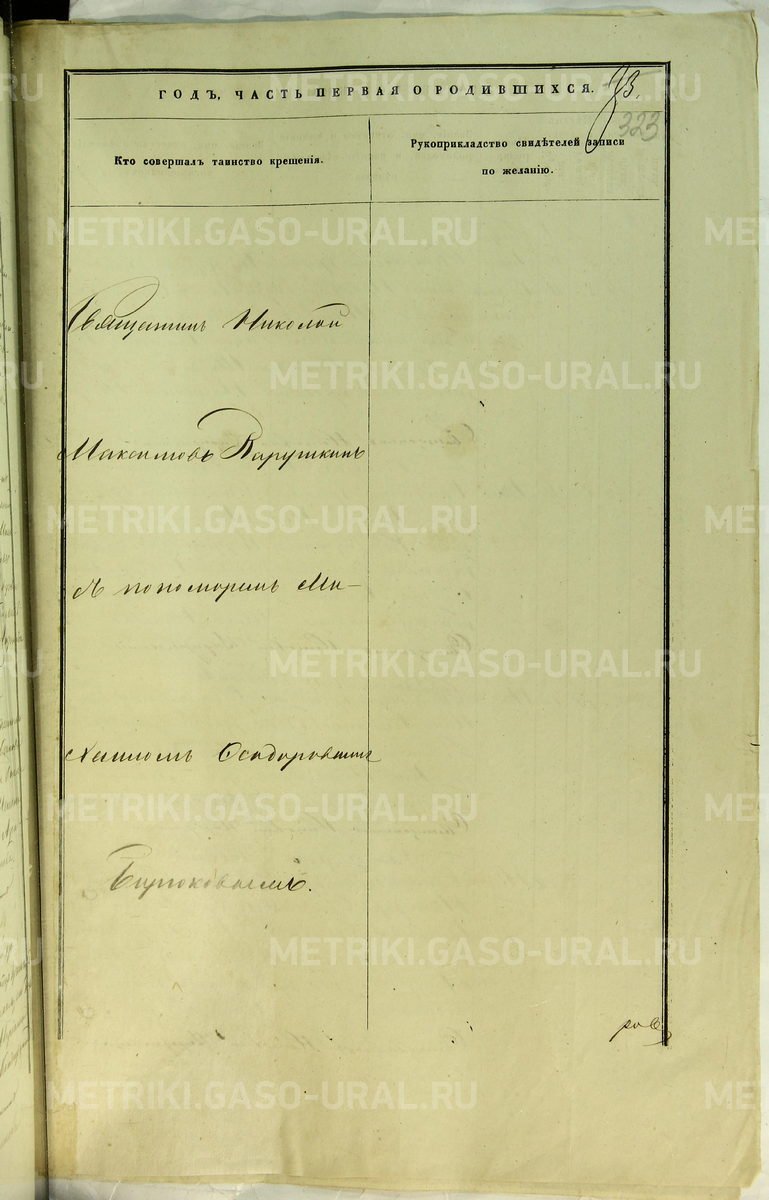 ГОДЪ, ЧАСТЬ ПЕРВАЯ О РОДИВШИХСЯ.
323
Кто совершалъ таинство крещенія.
Рукоприкладство свидѣтелей записи
по желанію.
Священникъ Николай
Максимовъ Варушкинъ
съ пономаремъ Ми-
хаиломъ Осидоровымъ
Бирюковымъ.
METRIKI.GASO-URAL.RU